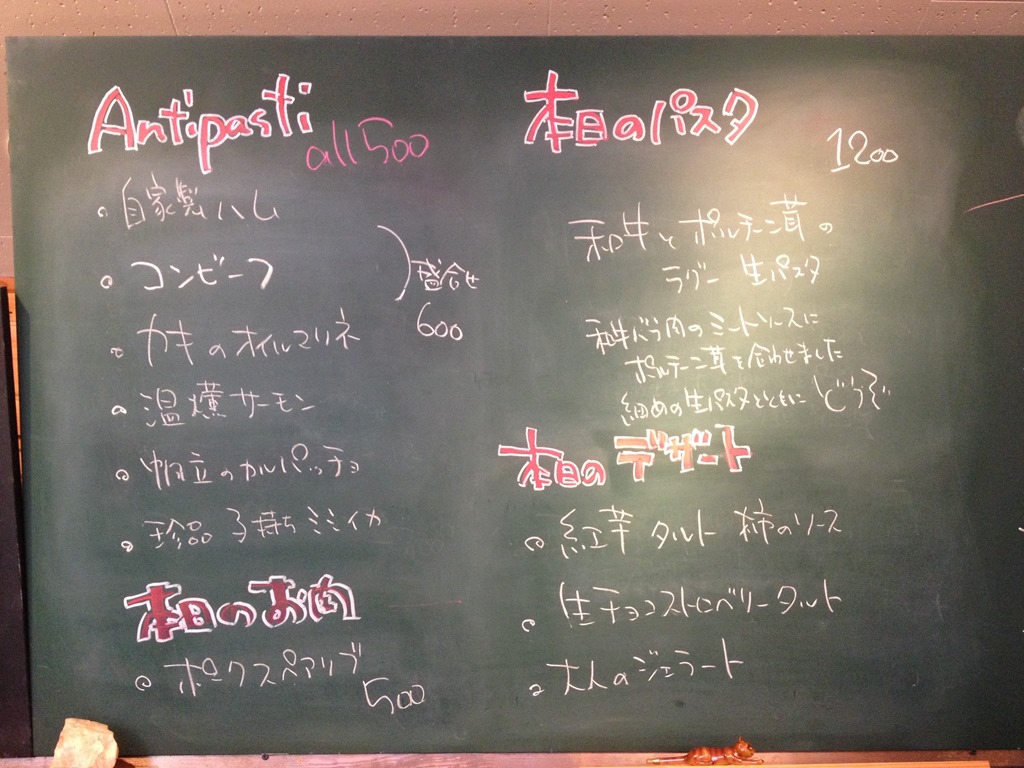 Antipasti
all 500
・自家製ハム
・コンビーフ
盛合せ
600
・カキのオイルマリネ
・温燻サーモン
・帆立のカルパッチョ
・珍品 子持ちミミイカ
本日のお肉
・ポークスペアリブ
500
本日のパスタ
1200
和牛とポルチーニ茸の
ラグー 生パスタ
和牛バラ肉のミートソースに
ポルチーニ茸を合わせました
細めの生パスタとともにどうぞ
本日のデザート
・紅芋タルト 柿のソース
・生チョコストロベリータルト
・大人のジェラート